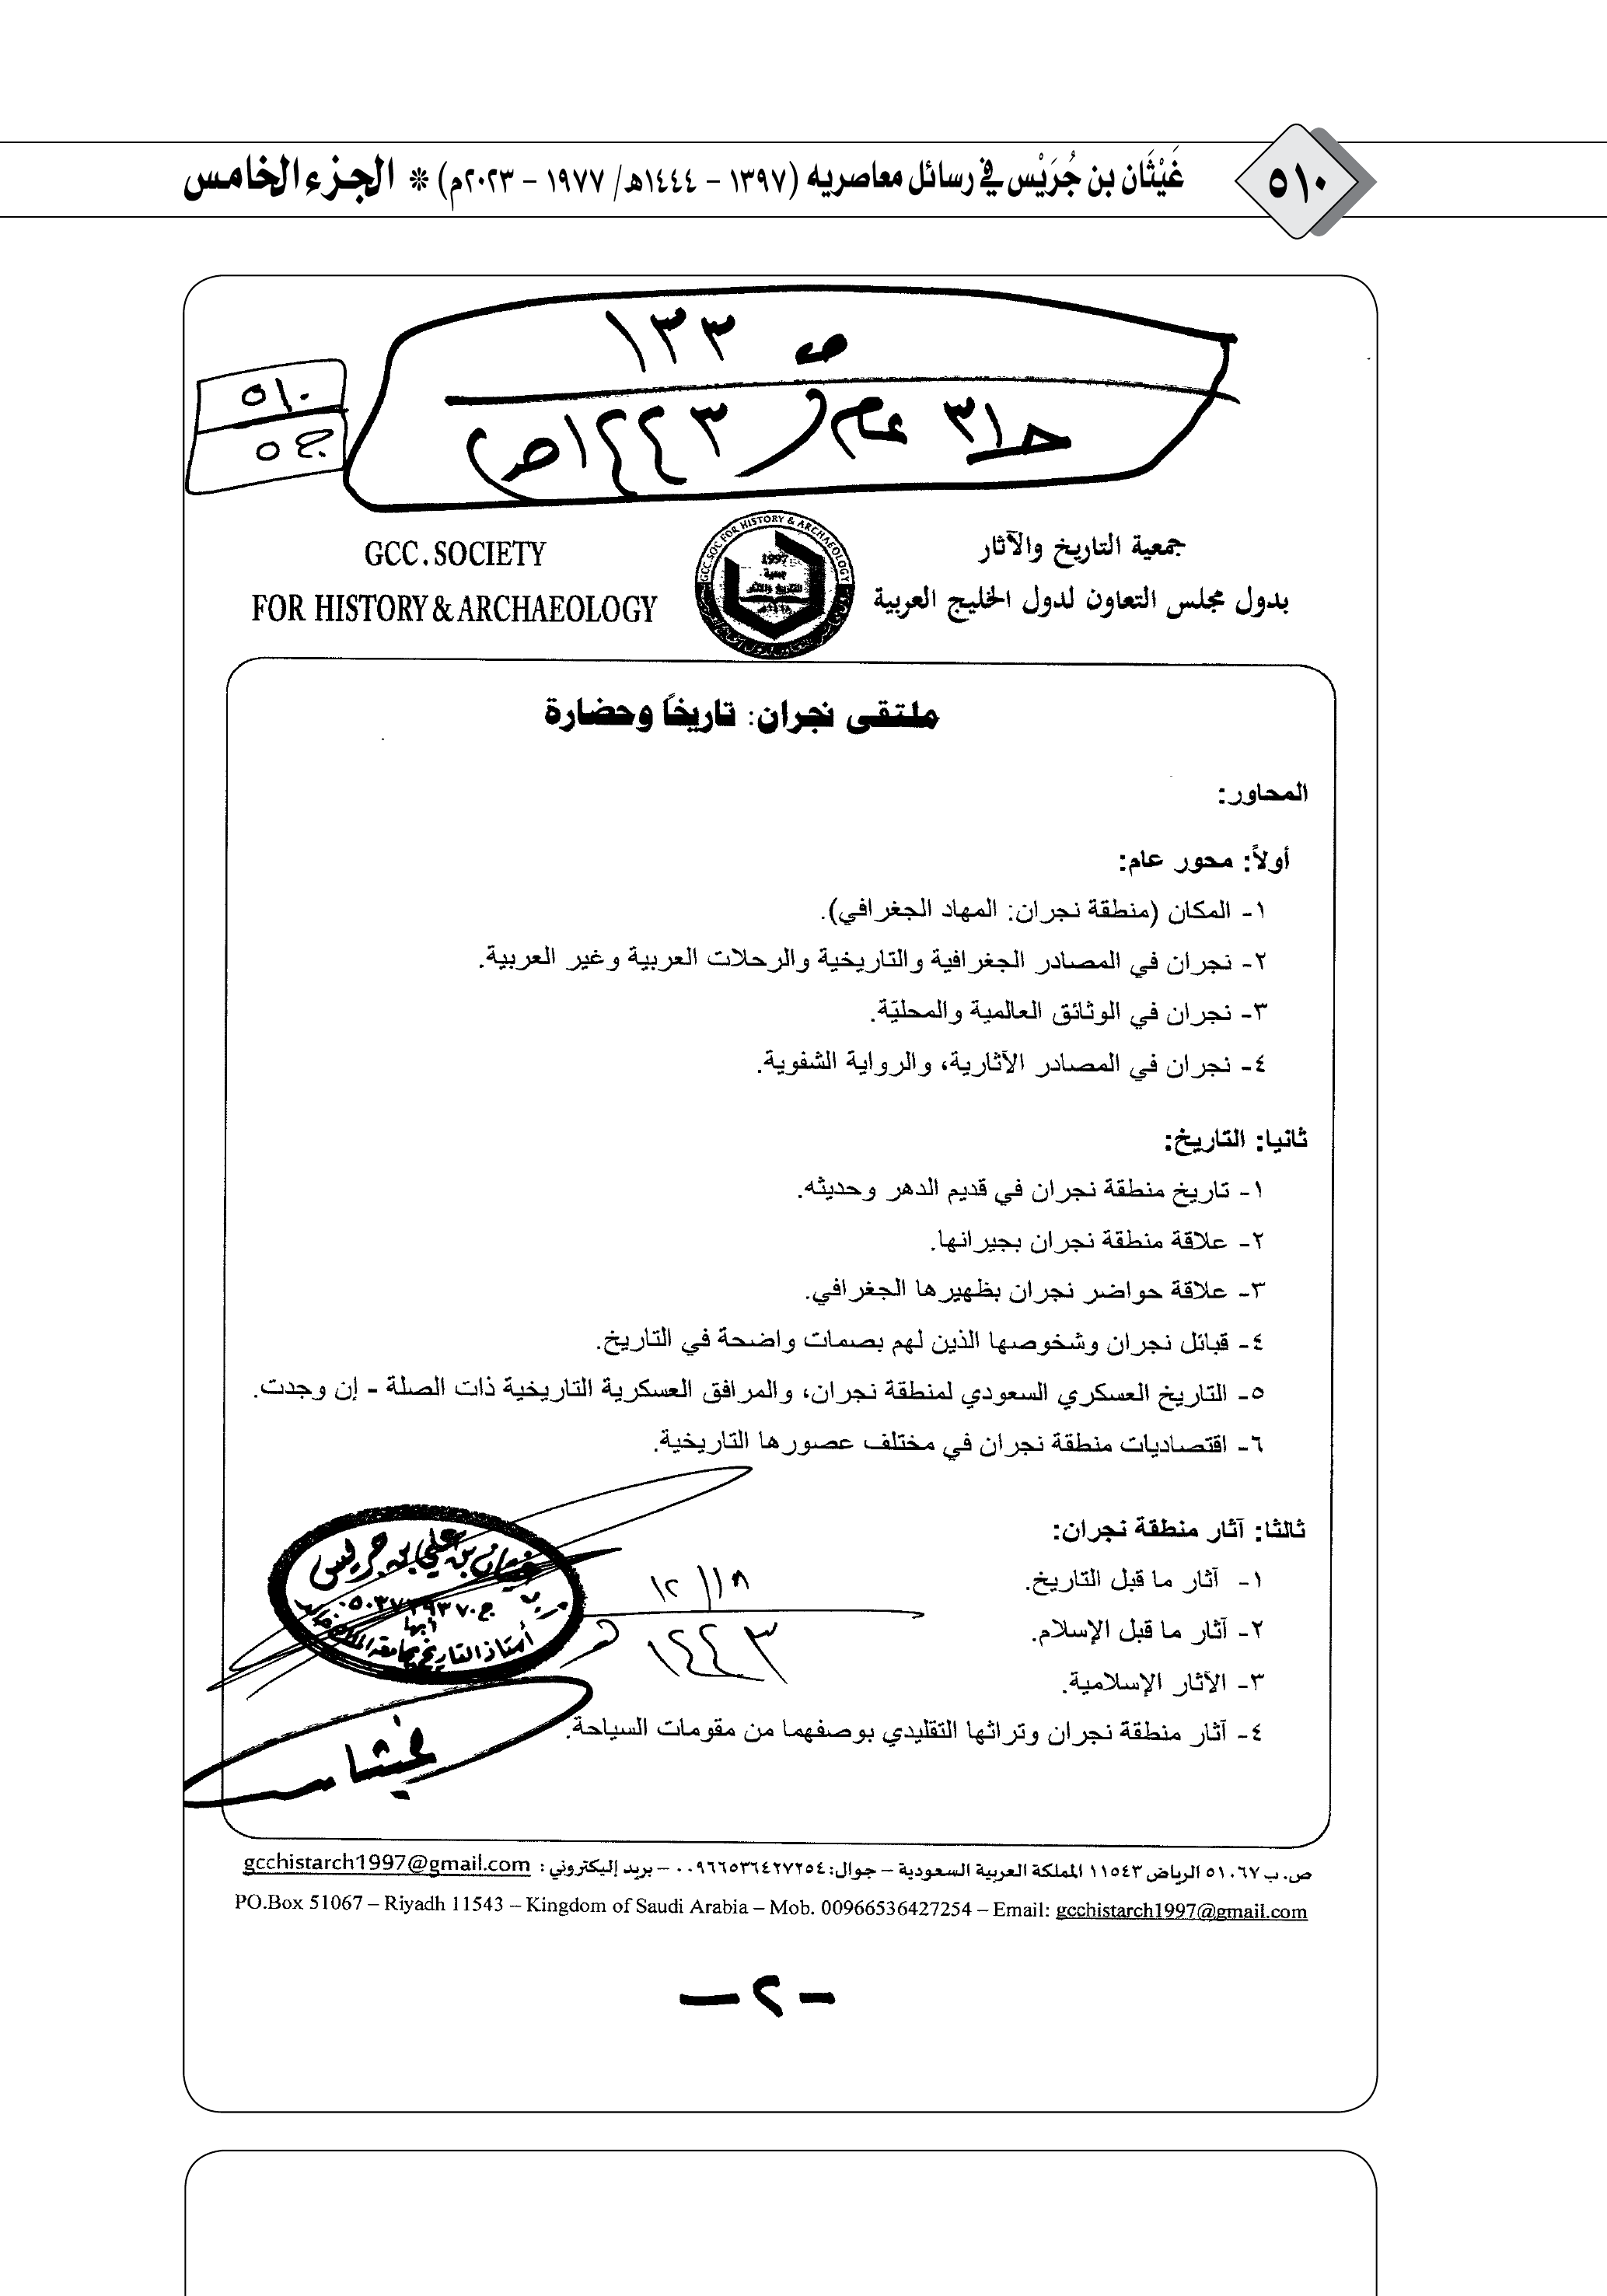 ٥١٠
غَيْثَان بن جُرَيْس في رسائل معاصريه (١٣٩٧ - ١٤٤٤هـ/ ١٩٧٧ - ٢٠٢٣م) * الجزء الخامس
ص ١٣٣
ح٣١ عام (١٤٤٣هـ)
٥١٠
ج٥
جمعية التاريخ والآثار
بدول مجلس التعاون لدول الخليج العربية
GCC.SOC FOR HISTORY & ARCHAEOLOGY
1997
GCC. SOCIETY
FOR HISTORY & ARCHAEOLOGY
ملتقى نجران: تاريخاً وحضارة
المحاور:
أولاً: محور عام:
١- المكان (منطقة نجران: المهاد الجغرافي).
٢- نجران في المصادر الجغرافية والتاريخية والرحلات العربية وغير العربية.
٣- نجران في الوثائق العالمية والمحليّة.
٤- نجران في المصادر الآثارية، والرواية الشفوية.
ثانيا: التاريخ:
١- تاريخ منطقة نجران في قديم الدهر وحديثه.
٢- علاقة منطقة نجران بجيرانها.
٣- علاقة حواضر نجران بظهيرها الجغرافي.
٤- قبائل نجران وشخوصها الذين لهم بصمات واضحة في التاريخ.
٥- التاريخ العسكري السعودي لمنطقة نجران، والمرافق العسكرية التاريخية ذات الصلة - إن وجدت.
٦- اقتصاديات منطقة نجران في مختلف عصورها التاريخية.
ثالثا: آثار منطقة نجران:
١- آثار ما قبل التاريخ.
٢- آثار ما قبل الإسلام.
٣- الآثار الإسلامية.
٤- آثار منطقة نجران وتراثها التقليدي بوصفهما من مقومات السياحة.
غيثان بن علي بن جريس
أبها
أستاذ التاريخ بجامعة الملك خالد
١٤٤٣هـ
غيثان
ص.ب ٥١٠٦٧ الرياض ١١٥٤٣ المملكة العربية السعودية – جوال: ٠٠٩٦٦٥٣٦٤٢٧٢٥٤ – بريد إليكتروني : gcchistarch1997@gmail.com
PO.Box 51067 – Riyadh 11543 – Kingdom of Saudi Arabia – Mob. 00966536427254 – Email: gcchistarch1997@gmail.com
-٢-